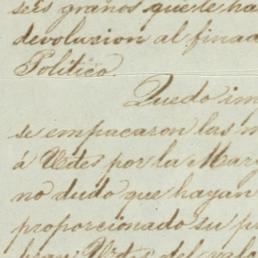 seis granos que le ha
devolusion al finad
Politico.
Quedo im
se empacaron las m
á Udes por la Mar
no dudo que hayan
proporcionado su p
Udes del vala